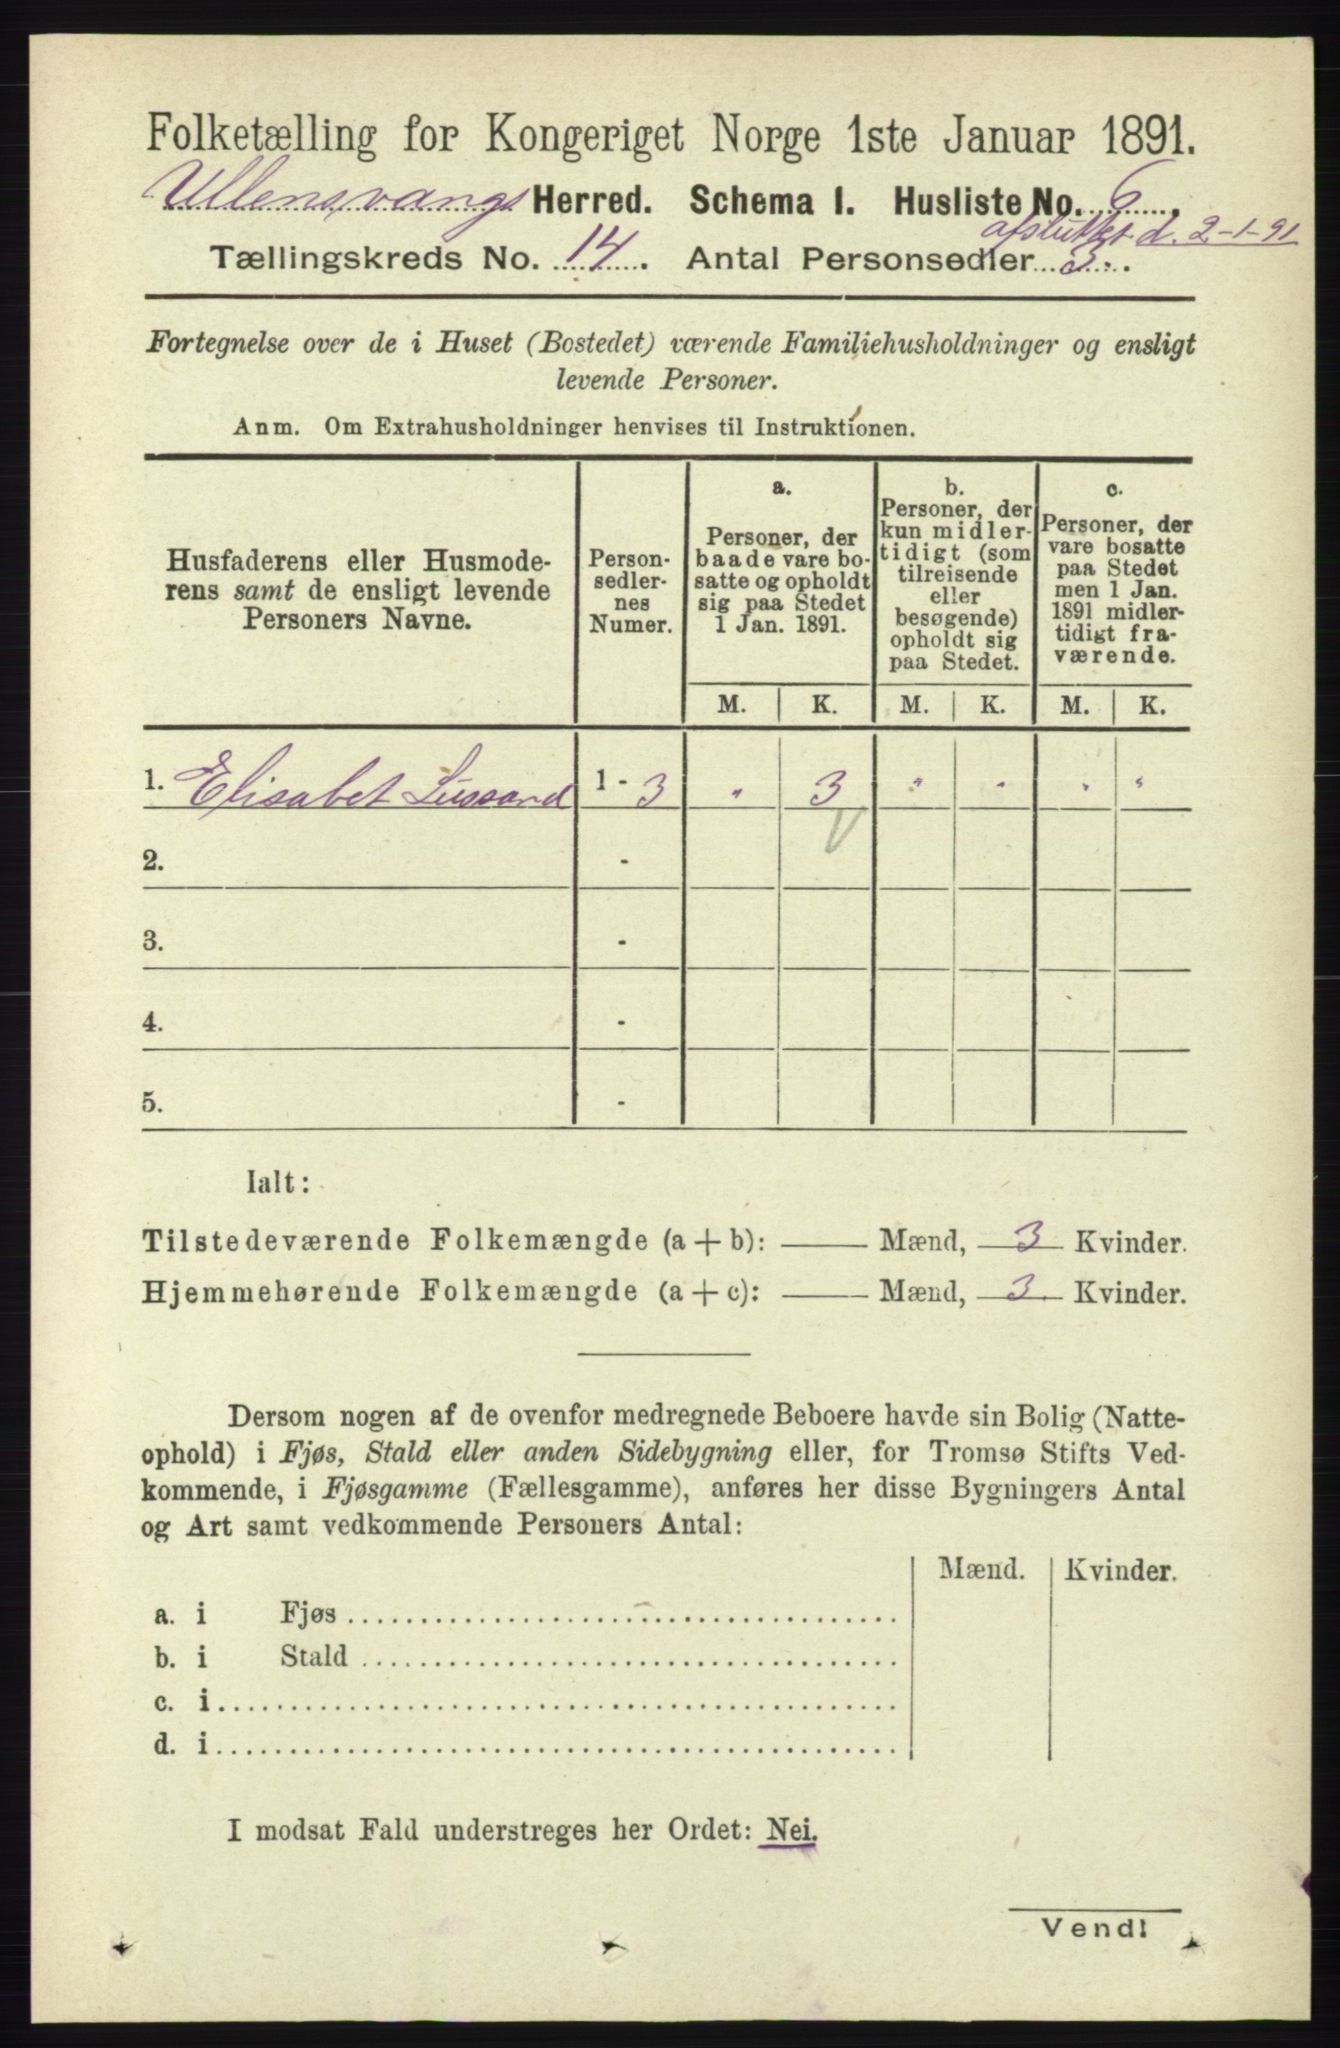 Folketælling for Kongeriget Norge 1ste Januar 1891.
Ullensvangs Herred. Schema 1. Husliste No. 6
afsluttet d. 2-1-91
Tællingskreds No. 14. Antal Personsedler 3.
Fortegnelse over de i Huset (Bostedet) værende Familiehusholdninger og ensligt
levende Personer.
Anm. Om Extrahusholdninger henvises til Instruktionen.
Husfaderens eller Husmode-
rens samt de ensligt levende
Personers Navne.
Person-
sedler-
nes
Numer.
a.
Personer, der
baade vare bo-
satte og opholdt
sig paa Stedet
1 Jan. 1891.
b.
Personer, der
kun midler-
tidigt (som
tilreisende
eller
besøgende)
opholdt sig
paa Stedet.
c.
Personer, der
vare bosatte
paa Stedet
men 1 Jan.
1891 midler-
tidigt fra-
værende.
M. K. M. K. M. K.
1. Elisabet Lussand 1 - 3 " 3 " " " "
2. -
3. -
4. -
5. -
Ialt:
Tilstedeværende Folkemængde (a + b): —— Mænd, 3 Kvinder.
Hjemmehørende Folkemængde (a + c): —— Mænd, 3 Kvinder.
Dersom nogen af de ovenfor medregnede Beboere havde sin Bolig (Natte-
ophold) i Fjøs, Stald eller anden Sidebygning eller, for Tromsø Stifts Ved-
kommende, i Fjøsgamme (Fællesgamme), anføres her disse Bygningers Antal
og Art samt vedkommende Personers Antal:
Mænd. Kvinder.
a. i Fjøs
b. i Stald
c. i
d. i
I modsat Fald understreges her Ordet: Nei.
Vend!